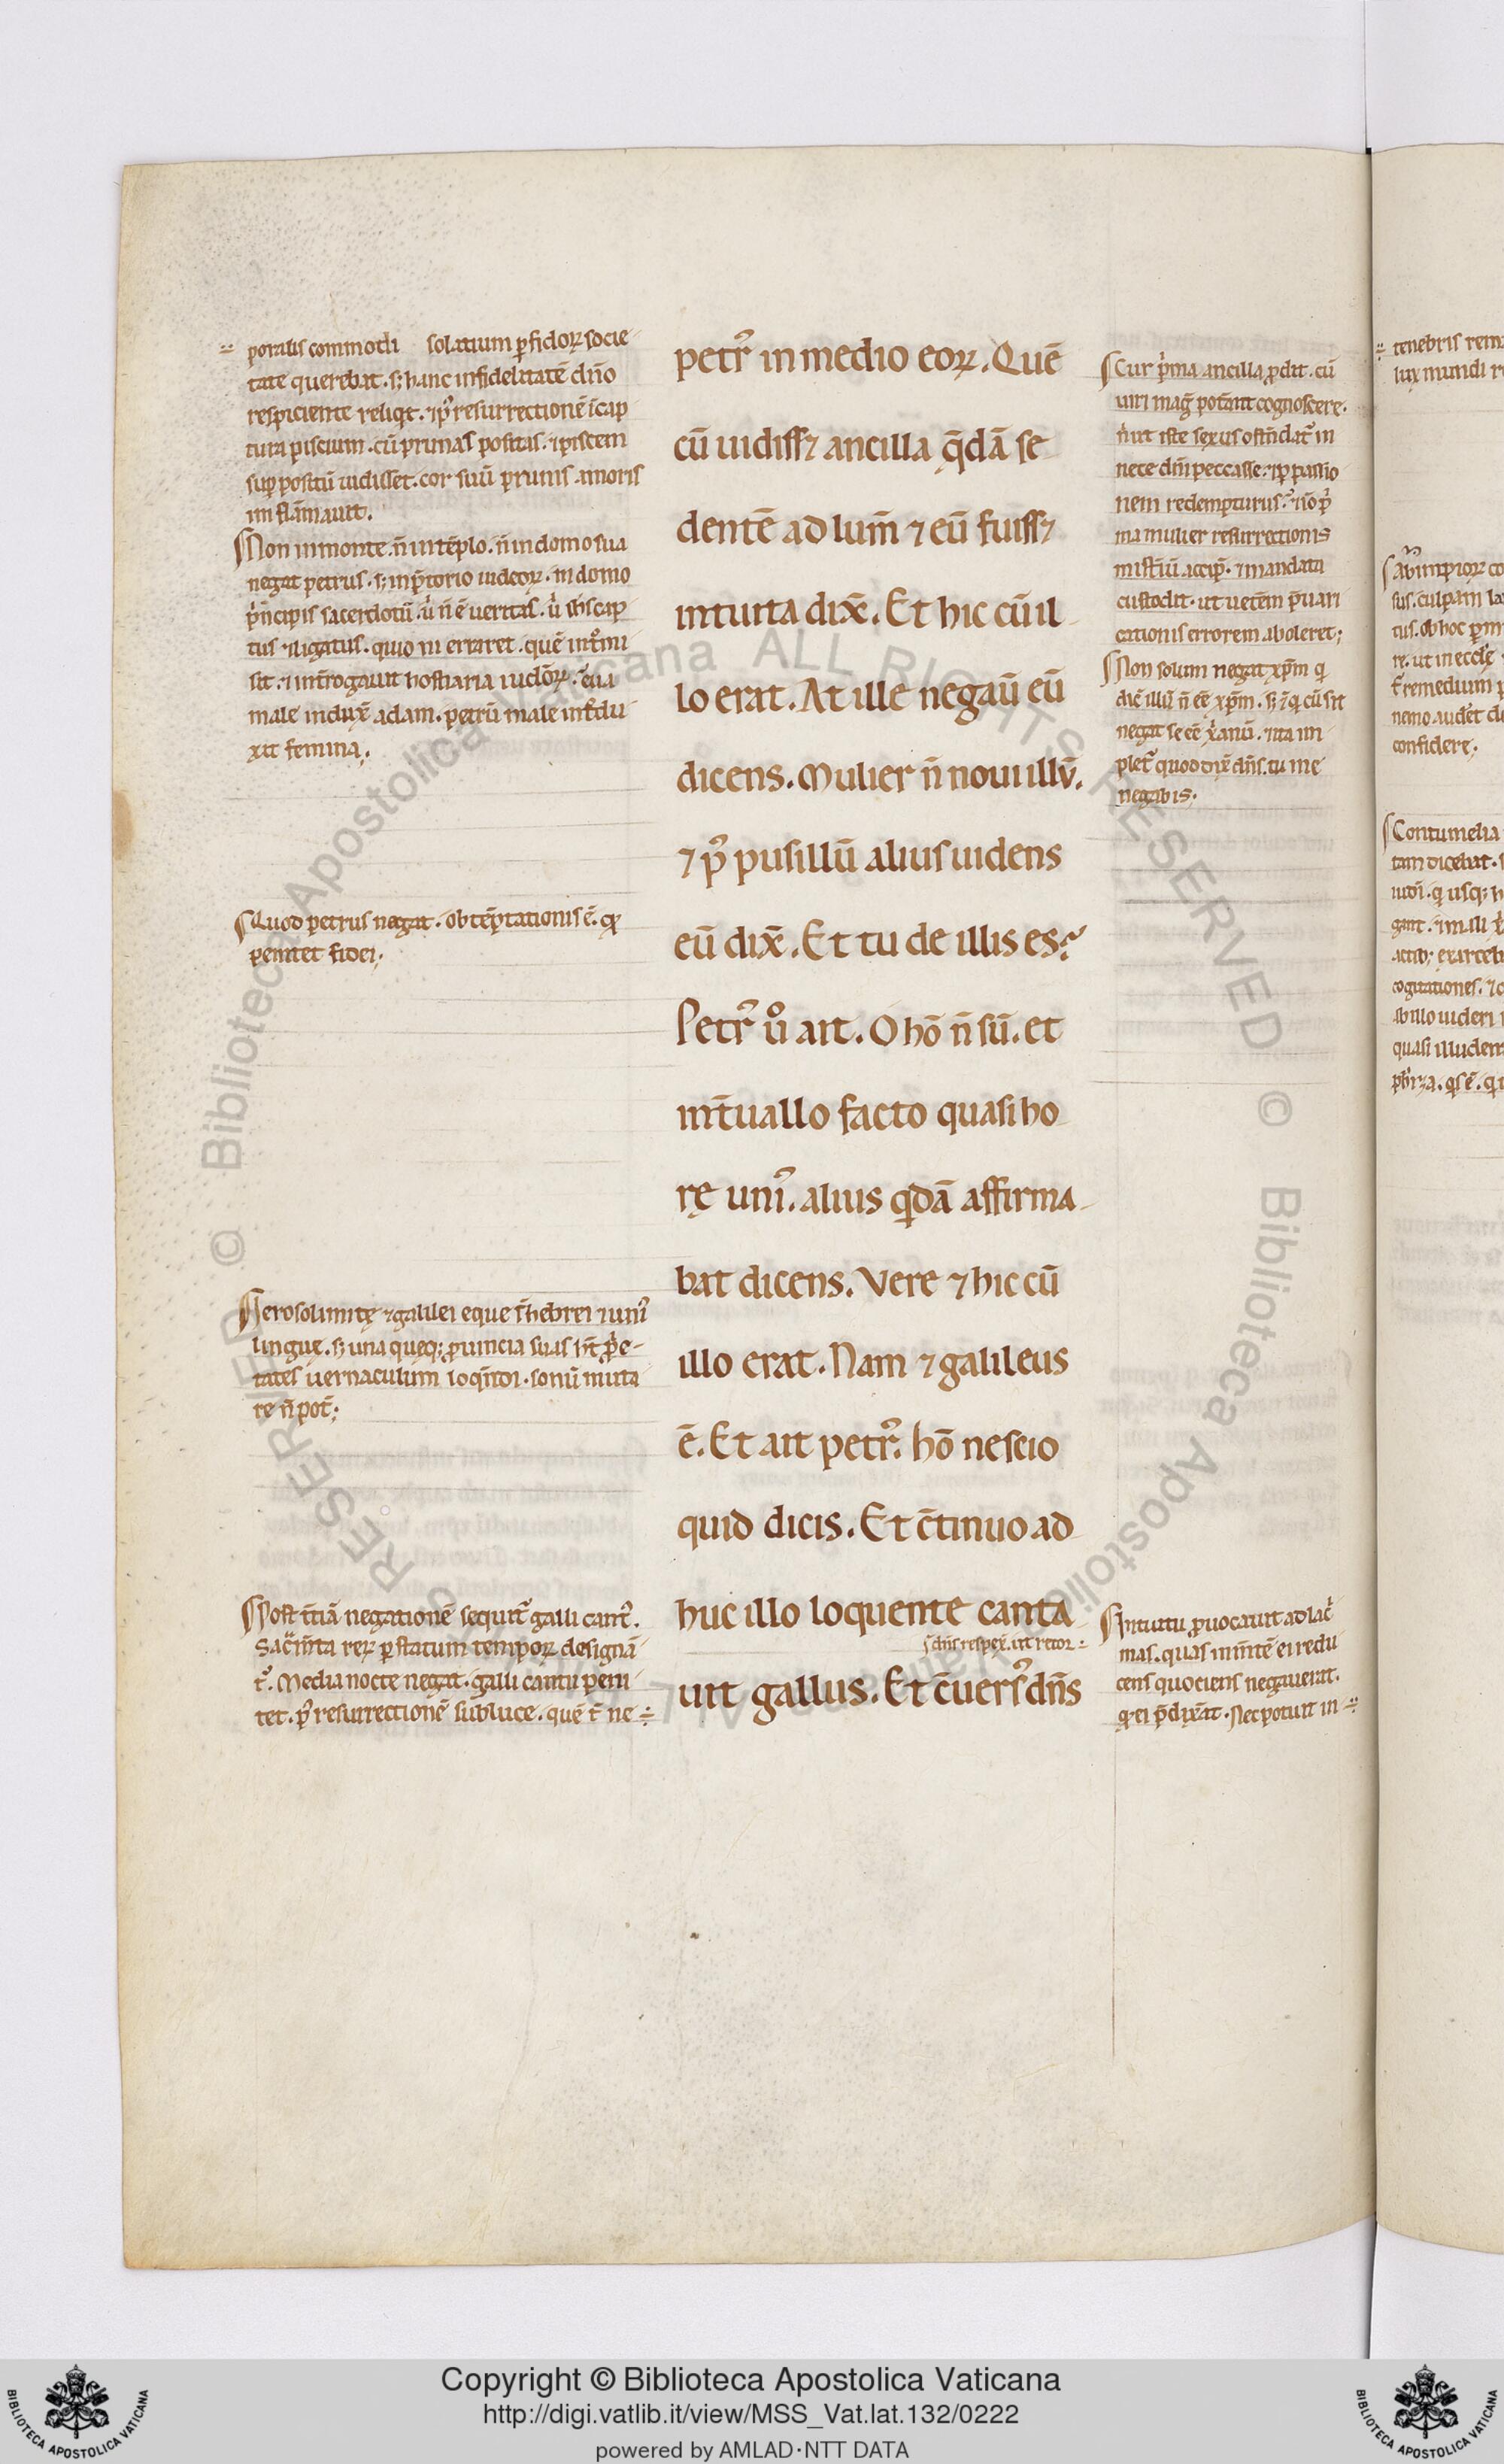 poralis commodi solatium ꝑfidoꝝ socie
tate querebat. s; hanc infidelitatē dn̄o
respiciente reliqt. ⁊ pꝰ resurrectionē ī cap
tura piscium. cū prunas positas. ⁊ piscem
suꝑ positū uidisset. cor suū prunis amoris
inflāmauit.
Non in monte. n̄ in tēplo. n̄ in domo sua
negat petrus. s; in p̄torio iudeoꝝ. in domo
p̄ncipis sacerdotū. u̍ n̄ ē ueritas. u̍ ih̄s cap
tus ⁊ ligatus. quio ni erraret. quē int̄mi
sit. ⁊ int̄rogauit hostiaria iudōꝝ? eua
male indux̄ adam. petrū male int̄du
xit femina.
Quod petrus negat. ob tēptationis ē. qꝫ
penitet fidei.
Ierosolimitę ⁊ galilei eque s̄t hebrei ⁊ uniꝰ
linguę. s; una quęq; ꝓuincia suas ht̄ ꝓp̍e
tates uernaculum loqn̄doi. sonū muta
re n̄ pot̄.
Post t̄tiā negationē sequit̄ galli cantꝰ.
Sacm̄ta reꝝ ꝑ statum tempoꝝ designā
t̄. Media nocte negat. galli cantu peni
tet. pꝰ resurrectionē sub luce. quē t̄ ne
petrꝰ in medio eoꝝ. Quē
cū uidiss; ancilla q̄dā se
dentē ad lum̄ ⁊ eū fuiss;
intuita dix̄. Et hic cū il
lo erat. At ille negaū eū
dicens. Mulier n̄ noui illū.
⁊ pꝰ pusillū alius uidens
eū dix̄. Et tu de illis es?
Petrꝰ uº ait. O hō n̄ sū. et
int̄uallo facto quasi ho
rę uniꝰ. alius qdā affirma
bat dicens. Vere ⁊ hic cū
illo erat. Nam ⁊ galileus
ē. Et ait petrꝰ. hō nescio
quid dicis. Et c̄tinuo ad
huc illo loquente canta
uit gallus. Et c̄uersꝰ dn̄s
Cur p̍ma ancilla ꝓdit. cū
uiri mag̍ pot̄ant cognoscere.
n̍ ut iste sexus ostn̄dat̄ in
nece dn̄i peccasse. ⁊ ꝑ passio
nem redempturus? ⁊ iō p̍
ma mulier resurrectionis
mist̄iū accip̍. ⁊ mandata
custodit. ut uetēm p̄uari
cationis errorem aboleret;
Non solum negat xp̄m q̍
dic̄ illū n̄ eē xp̄m. s; ⁊ q̍ cū sit
negat se eē x̍anū. ⁊ ita im
plet̄ quod dix̄ dn̄s. tu me
negabis.
Intuitu ꝓuocauit ad lac̍
mas. quas in m̄te ei redu
cens quociens negauerat.
q̄ ei p̄dix̄at. Nec potuit in
tenebris
lux mundi
sus. culpam
tus. ob hoc
re. ut in eccle
remedium
confidere.
Contumelia
tam dicebat.
cogitationes.
quasi
Copyright © Biblioteca Apostolica Vaticana
http://digi.vatlib.it/view/MSS_Vat.lat.132/0222
powered by AMLAD·NTT DATA